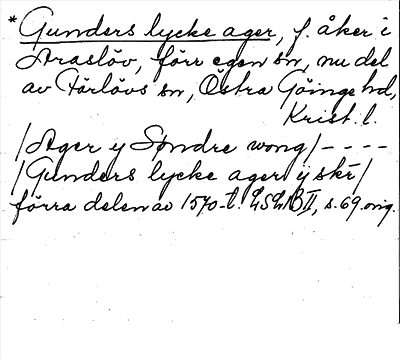 * Gunders lycke ager, f. åker i
Araslöv, förr egen sn, nu del
av Färlövs sn, Östra Göinge hd,
Krist. l.
/Ager y Søndre wong/ - - - -
/Gunders lycke ager y skr/
förra delen av 1570-t. LSLB II, s. 69. orig.